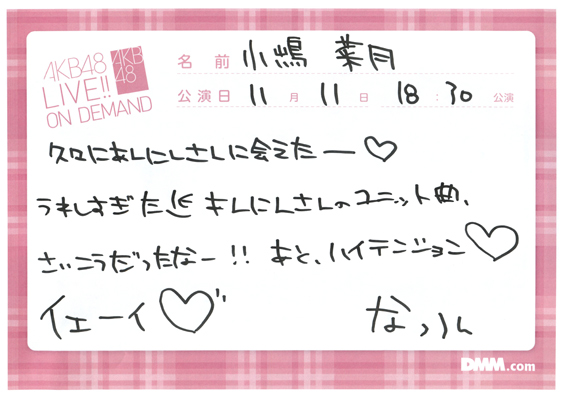 AKB48
LIVE!!
ON DEMAND
AKB
48
名前 小嶋 菜月
公演日 11月 11日 18:30 公演
久々にあんにんさんに会えたー♡
うれしすぎた
きんにんさんのユニット曲、
さいこうだったなー!! あと、ハイテンション♡
イエーイ♡
なつん
DMM.com